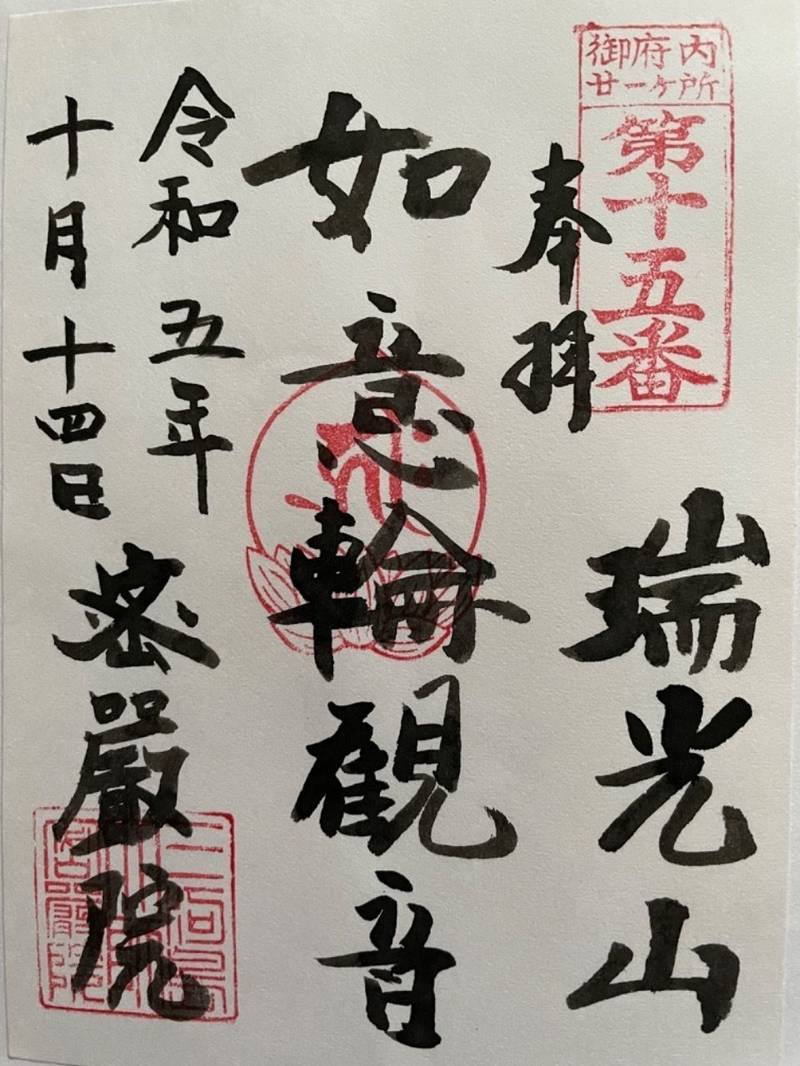 御府内
廿一ヶ所
第十五番
奉拝
瑞光山
如意輪観音
令和五年
十月十四日
密嚴院